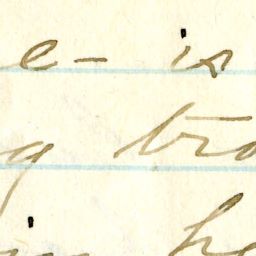 e - is
g tra
in he